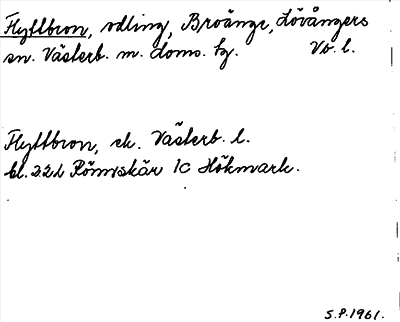 Flyttbron, odling, Broänge, Lövångers
sn. Västerb. m. doms. tg. Vb. l.
Flyttbron, ek. Västerb. l.
bl. 22 L Rönnskär 1c Hökmark.
S.P. 1961.